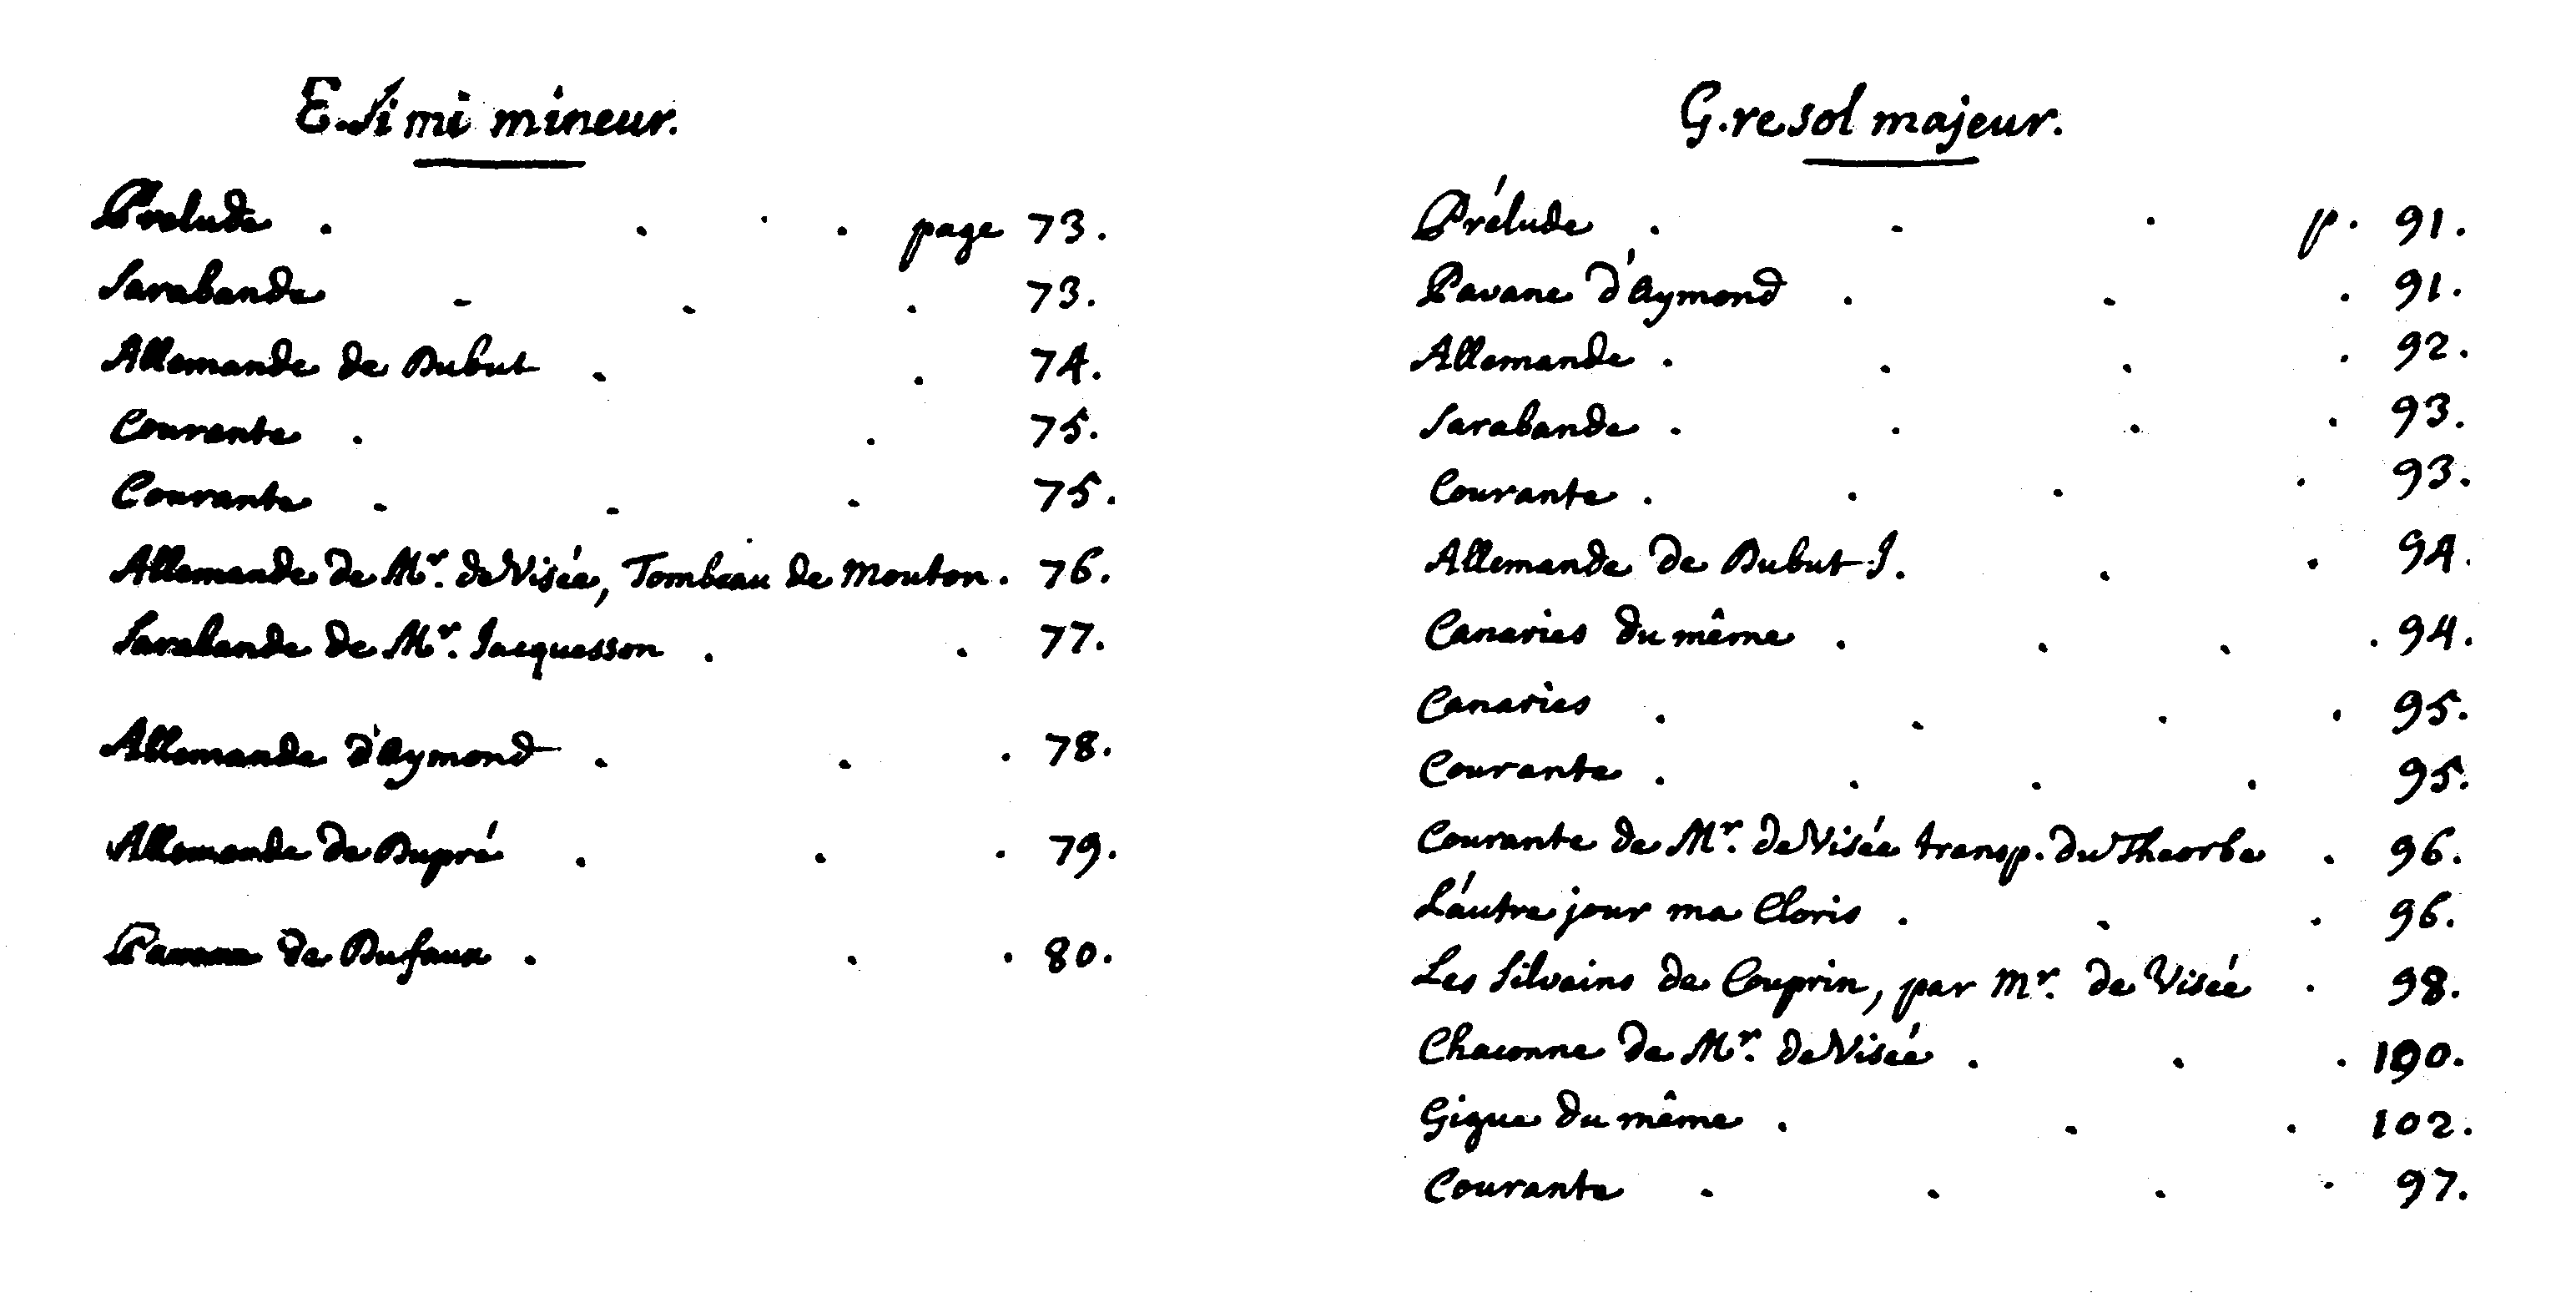 E. si mi mineur.
Prelude . . . . page 73.
Sarabande - . . 73.
Allemande de Dubut . . 74.
Courante . . 75.
Courante . . . 75.
Allemande de Mr. de Visée, Tombeau de Mouton. 76.
Sarabande de Mr. Jacquesson . . 77.
Allemande d'Aymond . . . 78.
Allemande de Dupré . . . 79.
Pavane de Dufaux . . . 80.
G. re sol majeur.
Prélude . . . p. 91.
Pavane d'Aymond . . . 91.
Allemande . . . . 92.
Sarabande . . . . 93.
Courante . . . . 93.
Allemande de Dubut J. . . 94.
Canaries du même . . . . 94.
Canaries . . . . 95.
Courante . . . . 95.
Courante de Mr. de Visée transp. du Theorbe . 96.
L'autre jour ma Cloris . . . 96.
Les Silvains de Couprin, par Mr. de Visée . 98.
Chaconne de Mr. de Visée . . . 100.
Gigue du même . . . 102.
Courante . . . . 97.